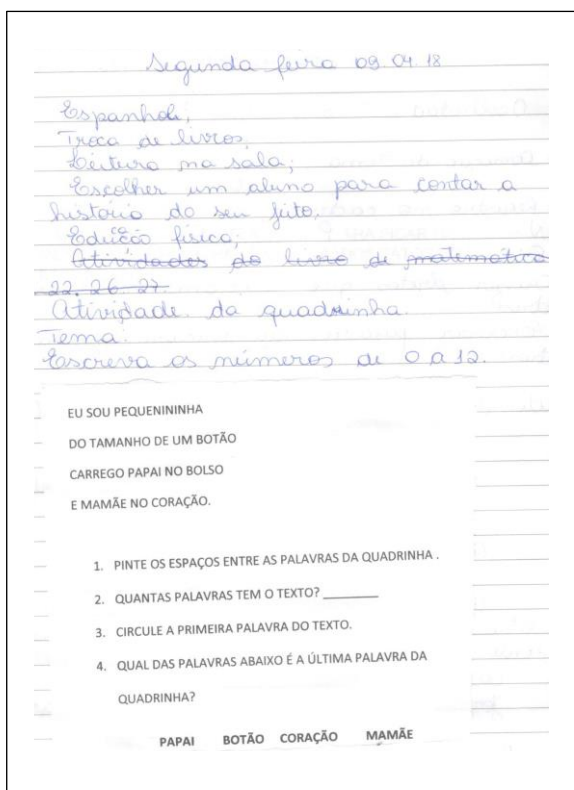 Segunda feira 09.04.18
Espanhol;
Troca de livros,
Leitura na sala;
Escolher um aluno para contar a
história do seu jeito,
Educação física;
Atividades do livro de matemática
22. 26 27.
Atividade da quadrinha.
Tema:
Escreva os números de 0 a 12.
EU SOU PEQUENININHA
DO TAMANHO DE UM BOTÃO
CARREGO PAPAI NO BOLSO
E MAMÃE NO CORAÇÃO.
1. PINTE OS ESPAÇOS ENTRE AS PALAVRAS DA QUADRINHA .
2. QUANTAS PALAVRAS TEM O TEXTO? ________
3. CIRCULE A PRIMEIRA PALAVRA DO TEXTO.
4. QUAL DAS PALAVRAS ABAIXO É A ÚLTIMA PALAVRA DA
QUADRINHA?
PAPAI BOTÃO CORAÇÃO MAMÃE